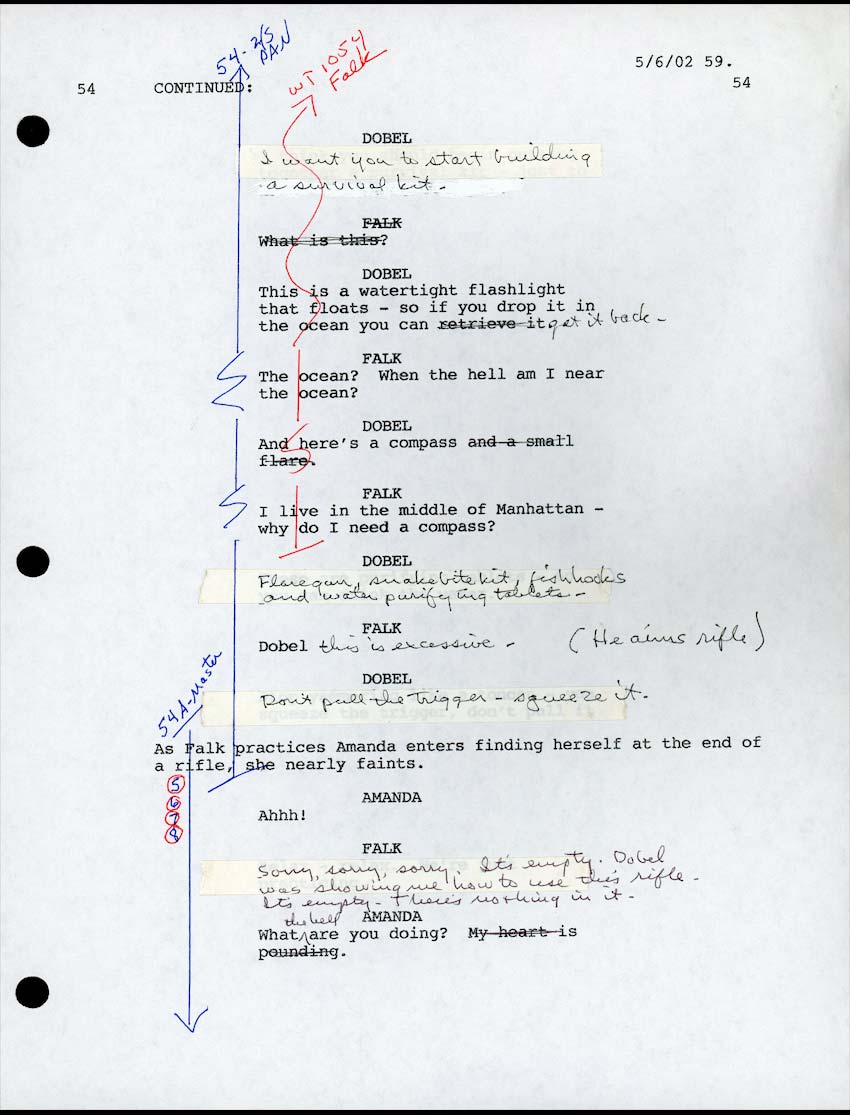 54-2/S
PAN
WT 1054
Falk
5/6/02 59.
54 CONTINUED: 54
DOBEL
I want you to start building
a survival kit.
FALK
What is this?
DOBEL
This is a watertight flashlight
that floats - so if you drop it in
the ocean you can retrieve it get it back -
FALK
The ocean? When the hell am I near
the ocean?
DOBEL
And here's a compass and a small
flare.
FALK
I live in the middle of Manhattan -
why do I need a compass?
DOBEL
Flaregun, snakebite kit, fishhooks
and water purifying tablets -
FALK
Dobel this is excessive - (He aims rifle)
DOBEL
Don't pull the trigger - squeeze it.
54A-Master
As Falk practices Amanda enters finding herself at the end of
a rifle, she nearly faints.
5
6
7
8
AMANDA
Ahhh!
FALK
Sorry, sorry, sorry. It's empty. Dobel
was showing me how to use this rifle.
Its empty - There's nothing in it -
AMANDA
What the hell are you doing? My heart is
pounding.